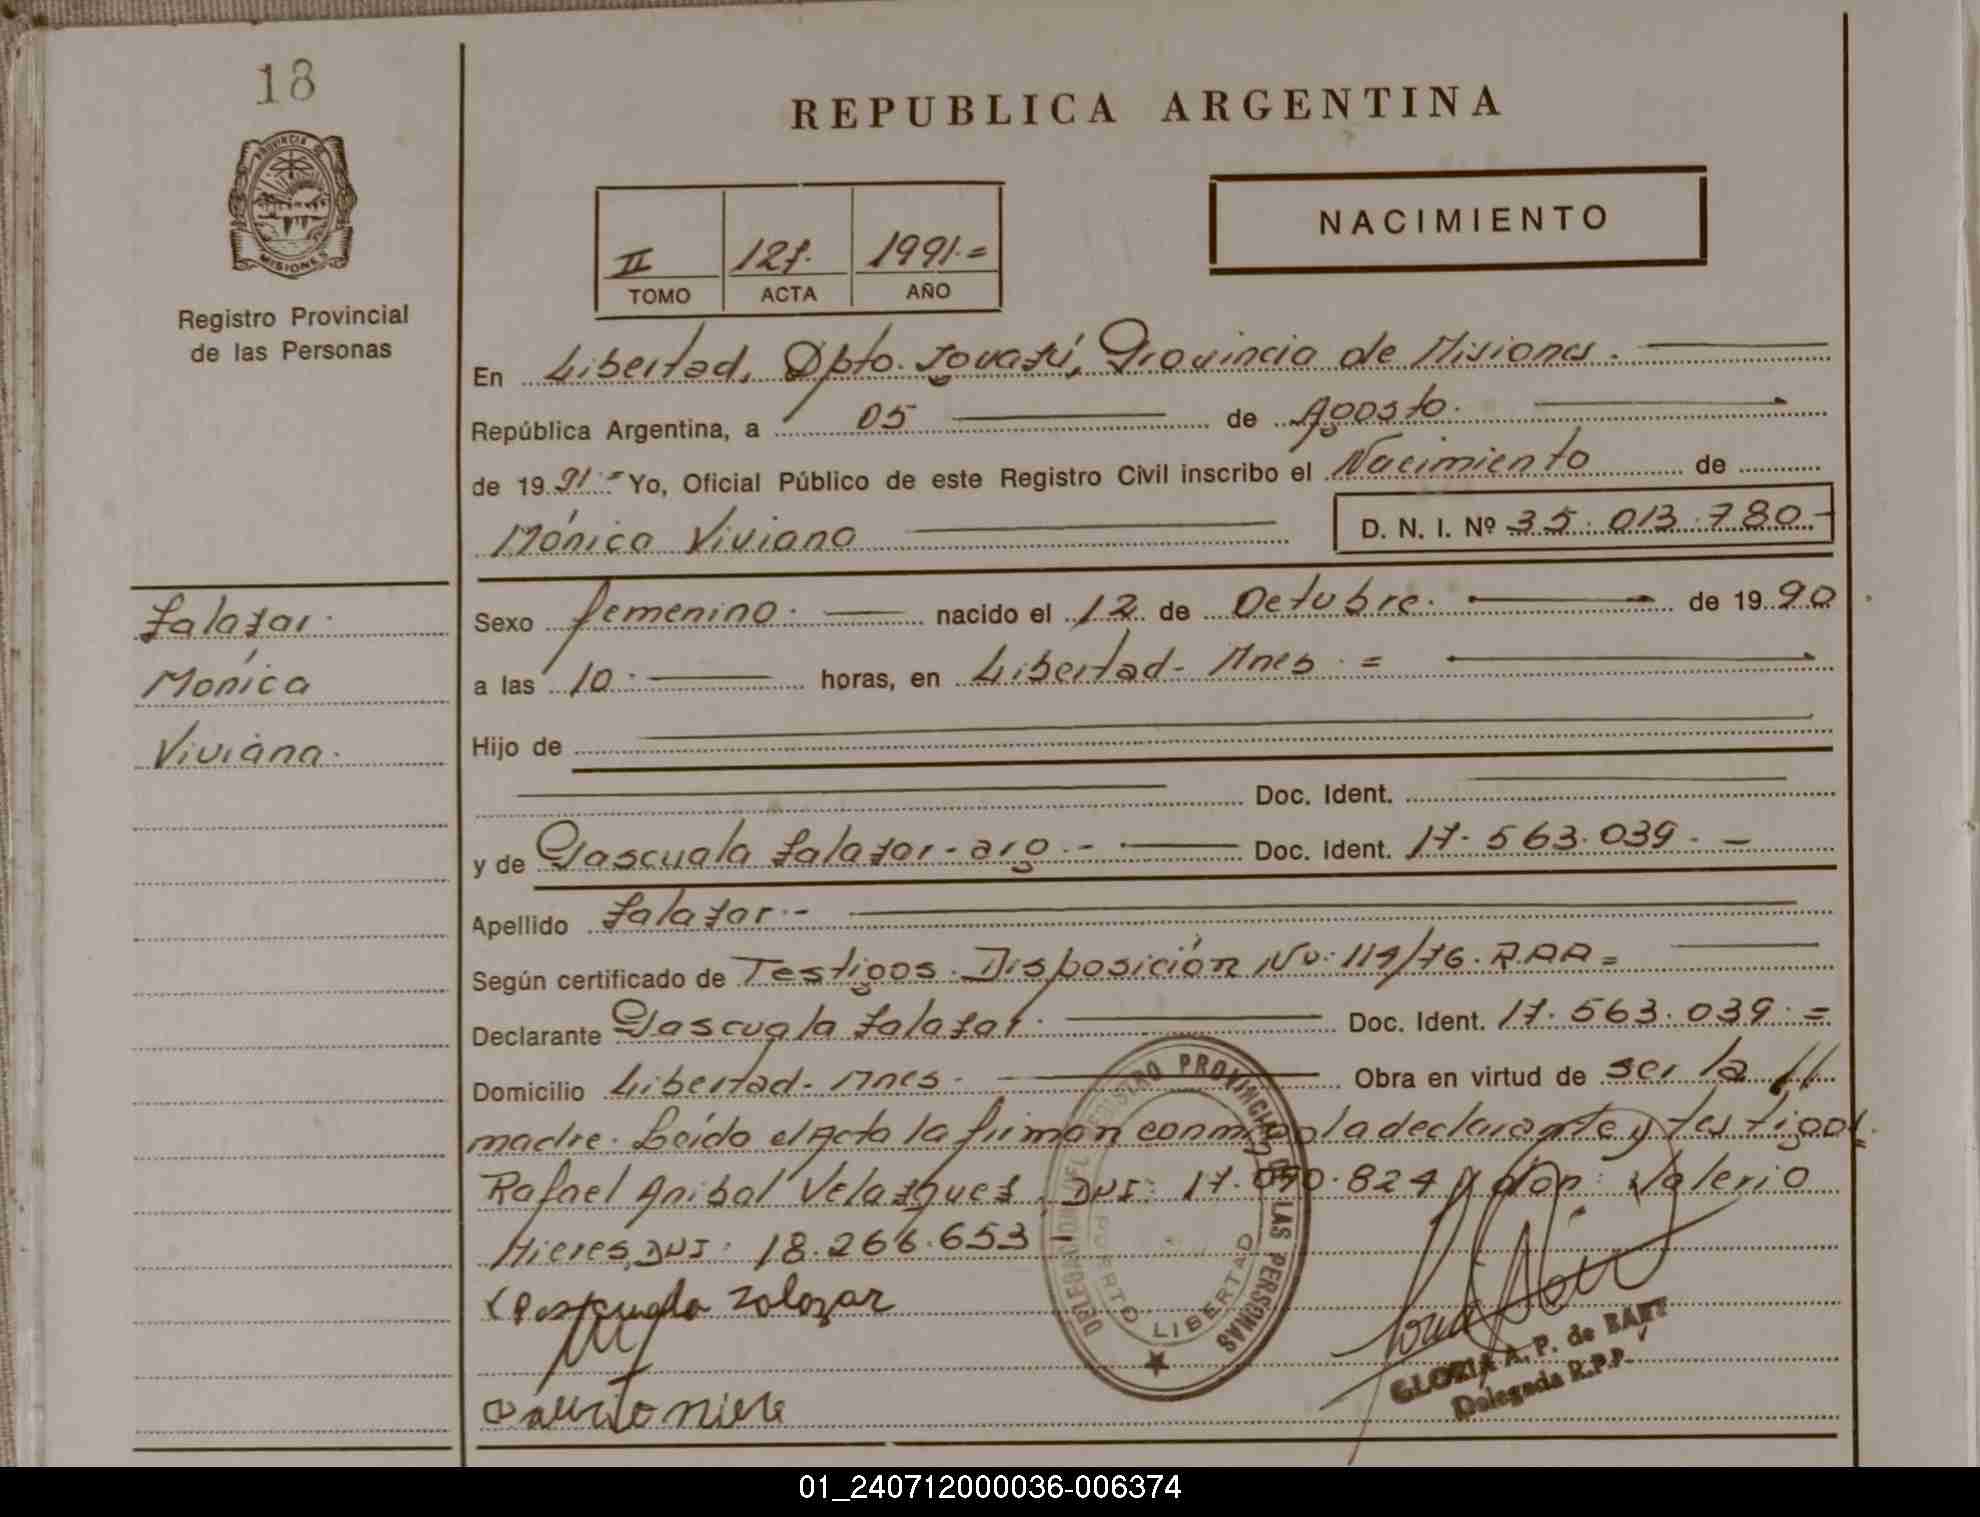 18
REPUBLICA ARGENTINA
PROVINCIA DE
MISIONES
Registro Provincial
de las Personas
II 127. 1991.=
TOMO ACTA AÑO
NACIMIENTO
En Libertad, Dpto. Iguazú, Provincia de Misiones.
República Argentina, a 05 de Agosto.
de 1991.= Yo, Oficial Público de este Registro Civil inscribo el Nacimiento de
Mónica Viviana D. N. I. Nº 35.013.780-
Salazar.
Mónica
Viviana.
Sexo femenino. nacido el 12 de Octubre. de 1990
a las 10. horas, en Libertad- Mnes. =
Hijo de
Doc. Ident.
y de Pascuala Salazar- arg.- Doc. Ident. 17.563.039.-
Apellido Salazar.-
Según certificado de Testigos. Disposición No. 119/76. R.P.P.=
Declarante Pascuala Salazar. Doc. Ident. 17.563.039.=
Domicilio Libertad- Mnes. Obra en virtud de ser la //
madre. Leído el Acta la firman conmigo la declarante y testigos.
Rafael Anibal Velazquez, DNI: 17.090.824 y don: Valerio
Mieres, DNI: 18.266.653-
Pascuala Zalazar
DELEGACION DEL REGISTRO PROVINCIAL DE LAS PERSONAS
PUERTO LIBERTAD
GLORIA A. P. de BAEZ
Delegada R.P.P.
01_240712000036-006374